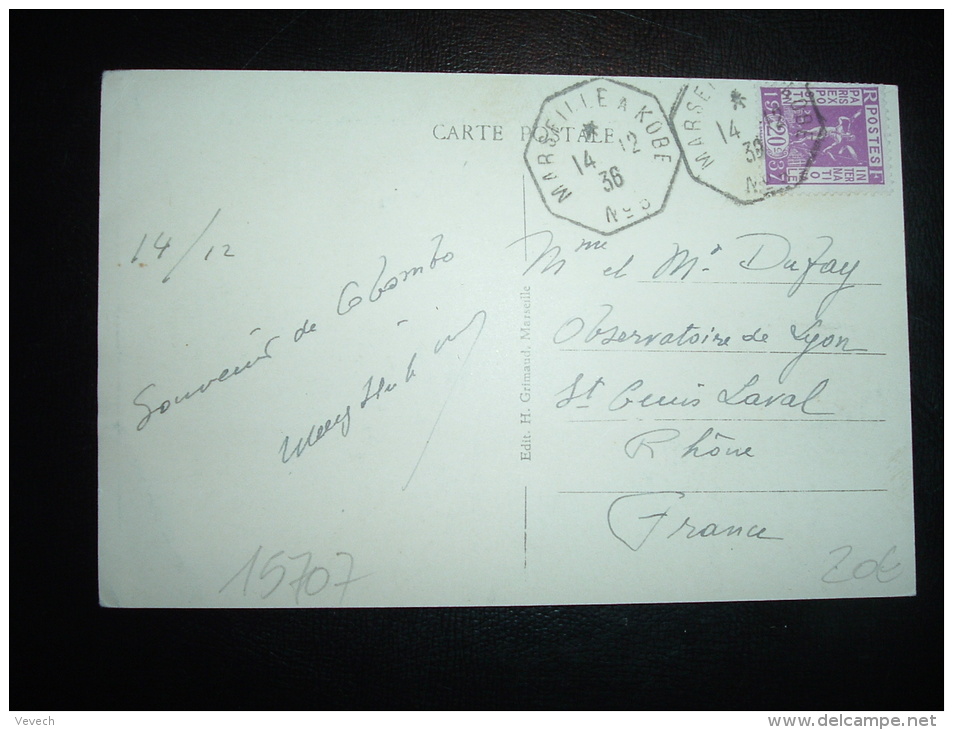 CARTE POSTALE
MARSEILLE A KOBE
*
14 12
36
Nº 8
MARSEI KOBE
*
14 12
36
Nº
R POSTES F
PARIS
EXPO
INTER
NATIO
1920c37
14/12
Souvenir de Colombo
Edit. H. Grimaud, Marseille
Mme et Mr Dufay
Observatoire de Lyon
St Genis Laval
Rhône
France
15707
20€
Vevech
www.delcampe.net